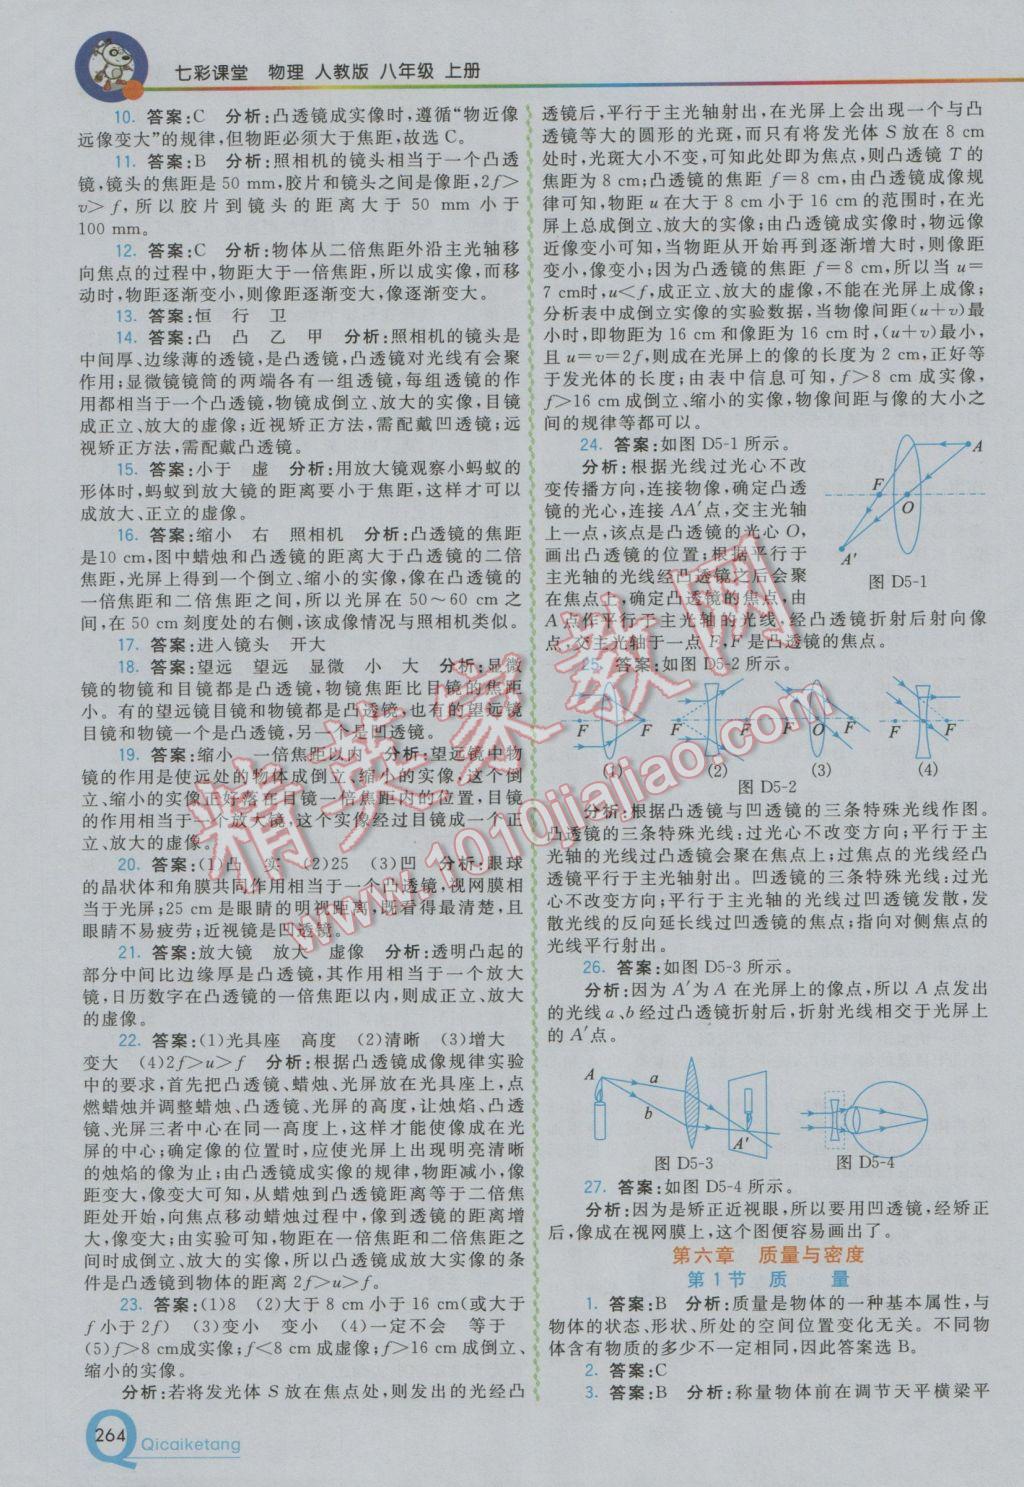 七彩课堂 物理 人教版 八年级 上册
10. 答案:C 分析:凸透镜成实像时,遵循“物近像
远像变大”的规律,但物距必须大于焦距,故选 C。
11. 答案:B 分析:照相机的镜头相当于一个凸透
镜,镜头的焦距是 50 mm,胶片和镜头之间是像距,2f>
v>f,所以胶片到镜头的距离大于 50 mm 小于
100 mm。
12. 答案:C 分析:物体从二倍焦距外沿主光轴移
向焦点的过程中,物距大于一倍焦距,所以成实像,而移
动时,物距逐渐变小,则像距逐渐变大,像逐渐变大。
13. 答案:恒 行 卫
14. 答案:凸 凸 乙 甲 分析:照相机的镜头是
中间厚、边缘薄的透镜,是凸透镜,凸透镜对光线有会聚
作用;显微镜镜筒的两端各有一组透镜,每组透镜的作
用都相当于一个凸透镜,物镜成倒立、放大的实像,目镜
成正立、放大的虚像;近视矫正方法,需配戴凹透镜;远
视矫正方法,需配戴凸透镜。
15. 答案:小于 虚 分析:用放大镜观察小蚂蚁的
形体时,蚂蚁到放大镜的距离要小于焦距,这样才可以
成放大、正立的虚像。
16. 答案:缩小 右 照相机 分析:凸透镜的焦距
是10 cm,图中蜡烛和凸透镜的距离大于凸透镜的二倍
焦距,光屏上得到一个倒立、缩小的实像,像在凸透镜的
一倍焦距和二倍焦距之间,所以光屏在 50～60 cm 之
间,在 50 cm 刻度处的右侧,该成像情况与照相机类似。
17. 答案:进入镜头 开大
18. 答案:望远 望远 显微 小 大 分析:显微
镜的物镜和目镜都是凸透镜,物镜焦距比目镜的焦距
小。有的望远镜目镜和物镜都是凸透镜,也有的望远镜
目镜和物镜一个是凸透镜,另一个是凹透镜。
19. 答案:缩小 一倍焦距以内 分析:望远镜中物
镜的作用是使远处的物体成倒立、缩小的实像,这个倒
立、缩小的实像正好落在目镜一倍焦距内的位置,目镜
的作用相当于一个放大镜,这个实像经过目镜成一个正
立、放大的虚像。
20. 答案:(1)凸 实 (2)25 (3)凹 分析:眼球
的晶状体和角膜共同作用相当于一个凸透镜,视网膜相
当于光屏;25 cm 是眼睛的明视距离,既看得最清楚,且
眼睛不易疲劳;近视镜是凹透镜。
21. 答案:放大镜 放大 虚像 分析:透明凸起的
部分中间比边缘厚是凸透镜,其作用相当于一个放大
镜,日历数字在凸透镜的一倍焦距以内,则成正立、放大
的虚像。
22. 答案:(1)光具座 高度 (2)清晰 (3)增大
变大 (4)2f>u>f 分析:根据凸透镜成像规律实验
中的要求,首先把凸透镜、蜡烛、光屏放在光具座上,点
燃蜡烛并调整蜡烛、凸透镜、光屏的高度,让烛焰、凸透
镜、光屏三者中心在同一高度上,这样才能使像成在光
屏的中心;确定像的位置时,应使光屏上出现明亮清晰
的烛焰的像为止;由凸透镜成实像的规律,物距减小,像
距变大,像变大,从蜡烛到凸透镜距离等于二倍焦
距处开始,向焦点移动蜡烛过程中,像到透镜的距离增
大,像变大;由实验可知,物距在一倍焦距和二倍焦距之
间时成倒立、放大的实像,所以凸透镜成放大实像的条
件是凸透镜到物体的距离 2f>u>f。
23. 答案:(1)8 (2)大于 8 cm小于 16 cm(或大于
f小于 2f) (3)变小 变小 (4)一定不会 等于
(5)f>8 cm成实像;f<8 cm成虚像;f>16 cm成倒立、
缩小的实像。
分析:若将发光体 S 放在焦点处,则发出的光经凸
透镜后,平行于主光轴射出,在光屏上会出现一个与凸
透镜等大的圆形的光斑,而只有将发光体 S 放在 8 cm
处时,光斑大小不变,可知此处即为焦点,则凸透镜 T 的
焦距为 8 cm;凸透镜的焦距 f=8 cm,由凸透镜成像规
律可知,物距 u 在大于 8 cm 小于 16 cm 的范围时,在光
屏上总成倒立、放大的实像;由凸透镜成实像时,物远像
近像变小可知,当物距从开始再到逐渐增大时,则像距
变小,像变小;因为凸透镜的焦距 f=8 cm,所以当 u=
7 cm时,u<f,成正立、放大的虚像,不能在光屏上成像;
分析表中成倒立实像的实验数据,当物像间距(u+v)最
小时,即物距为 16 cm 和像距为 16 cm 时,(u+v)最小,
且 u=v=2f,则成在光屏上的像的长度为 2 cm,正好等
于发光体的长度;由表中信息可知,f>8 cm 成实像,
f>16 cm 成倒立、缩小的实像,物像间距与像的大小之
间的规律等都可以。
24. 答案:如图 D5-1 所示。
分析:根据光线过光心不改
变传播方向,连接物像,确定凸透
镜的光心,连接 AA′点,交主光轴
上一点,该点是凸透镜的光心 O,
画出凸透镜的位置;根据平行于
主光轴的光线经凸透镜之后会聚
在焦点上,确定凸透镜的焦点,由
A 点作平行于主光轴的光线,经凸透镜折射后射向像
点,交主光轴于一点 F,F 是凸透镜的焦点。
A
F
O
A′
图 D5-1
25. 答案:如图 D5-2 所示。
F F F F F O F F F
(1) (2) (3) (4)
图 D5-2
分析:根据凸透镜与凹透镜的三条特殊光线作图。
凸透镜的三条特殊光线:过光心不改变方向;平行于主
光轴的光线过凸透镜会聚在焦点上;过焦点的光线经凸
透镜平行于主光轴射出。凹透镜的三条特殊光线:过光
心不改变方向;平行于主光轴的光线过凹透镜发散,发
散光线的反向延长线过凹透镜的焦点;指向对侧焦点的
光线平行射出。
26. 答案:如图 D5-3 所示。
分析:因为 A′为 A 在光屏上的像点,所以 A 点发出
的光线a、b经过凸透镜折射后,折射光线相交于光屏上
的 A′点。
A
a
b
A′
图 D5-3 图 D5-4
27. 答案:如图 D5-4 所示。
分析:因为是矫正近视眼,所以要用凹透镜,经矫正
后,像成在视网膜上,这个图便容易画出了。
第六章 质量与密度
第 1 节 质 量
1. 答案:B 分析:质量是物体的一种基本属性,与
物体的状态、形状、所处的空间位置变化无关。不同物
体含有物质的多少不一定相同,因此答案选 B。
2. 答案:C
3. 答案:B 分析:称量物体前在调节天平横梁平
264
Qicaiketang
精英家教网
www.1010jiajiao.com